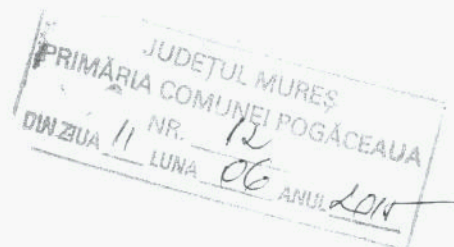 JUDEȚUL MUREȘ
PRIMĂRIA COMUNEI POGĂCEAUA
NR. 12
DIN ZIUA 11 LUNA 06 ANUL